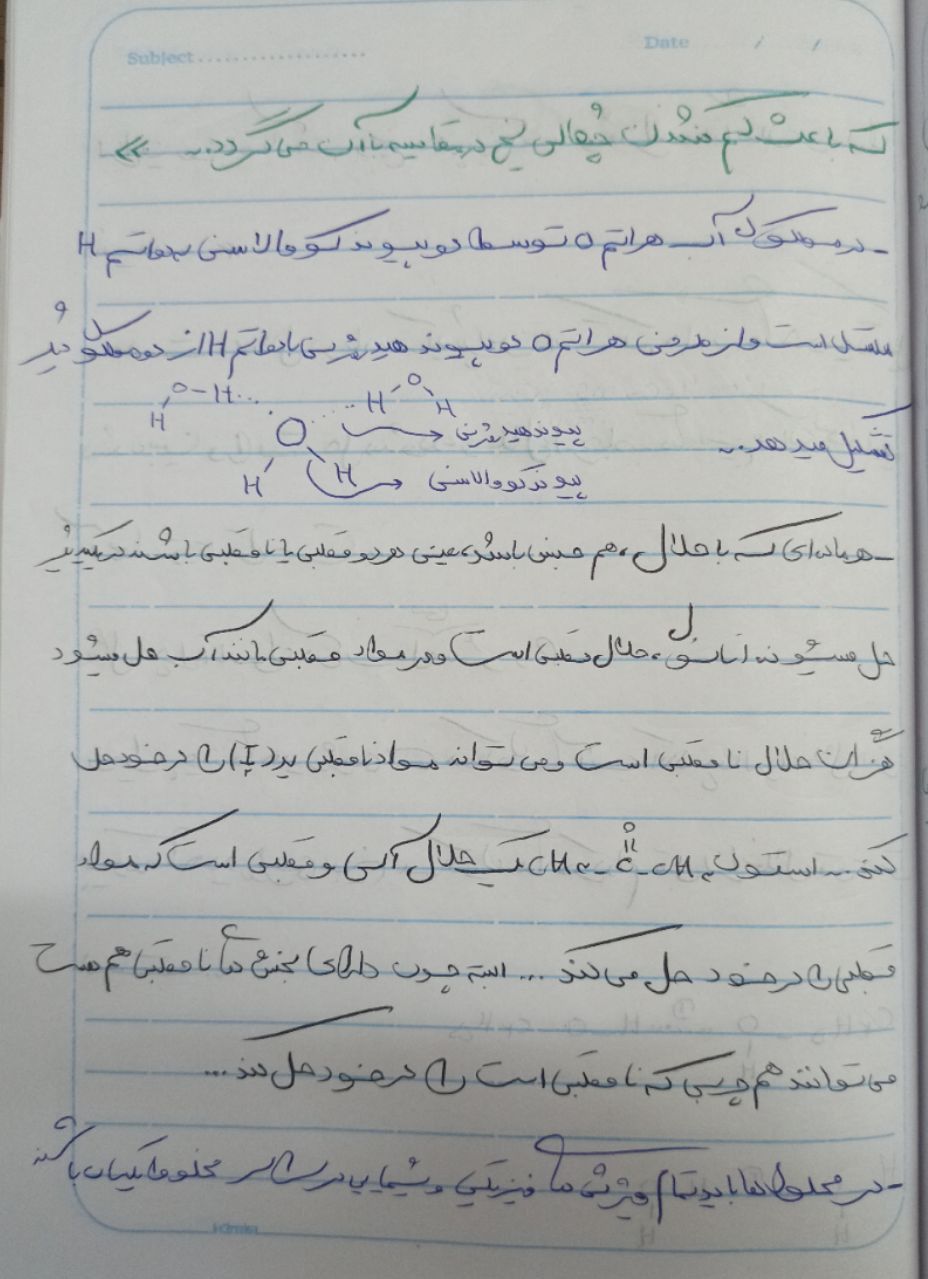 Subject
Date / /
که باعث کم شدن چگالی یخ در مقایسه با آب می گردد.. »
- در مولکول آب هر اتم O توسط دو پیوند کووالانسی به دو اتم H
متصل است و از طرفی هر اتم O دو پیوند هیدروژنی با دو اتم H از دو مولکول دیگر
تشکیل میدهد..
O-H... H ...H O H
O پیوند هیدروژنی
H H پیوند کووالانسی
- هر ماده ای که با حلال، هم جنس باشد، یعنی هر دو قطبی یا ناقطبی باشند در یکدیگر
حل میشوند اتانول، حلال قطبی است و در مواد قطبی مانند آب حل میشود
هگزان حلال ناقطبی است و می تواند مواد ناقطبی ید (I₂) را در خود حل
کند... استون CH₃-C-CH₃ یک حلال آلی و قطبی است که مواد
O
قطبی را در خود حل می کند ... البته چون دارای بخش های ناقطبی هم هست
می توانند هم چربی که ناقطبی است را در خود حل کند...
- در محلول ها باید تمام ویژگی های فیزیکی و شیمیایی در سرتاسر مخلوط یکسان باشد